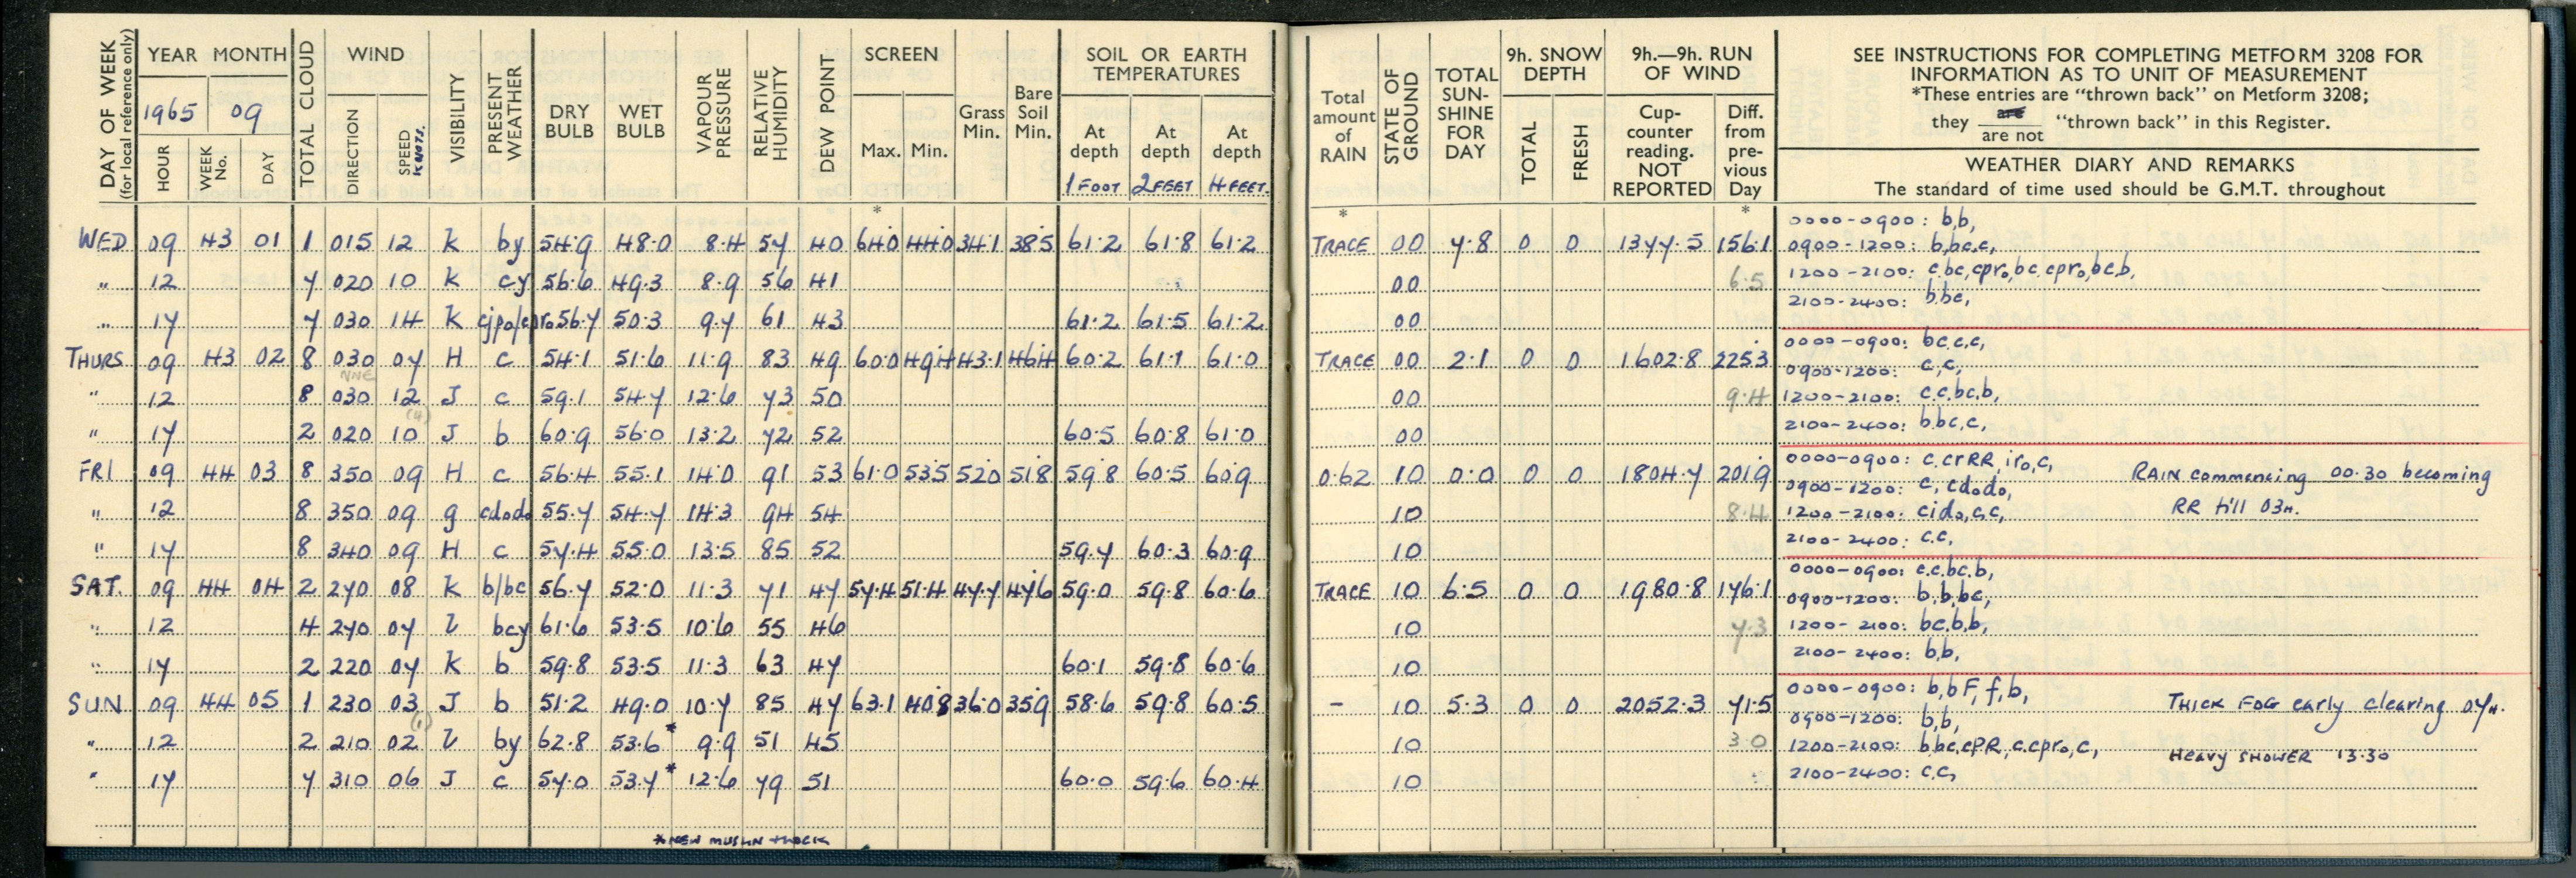 DAY OF WEEK (for local reference only)
YEAR MONTH
1965 09
HOUR WEEK No. DAY
TOTAL CLOUD
WIND
DIRECTION SPEED KNOTS.
VISIBILITY
PRESENT WEATHER
DRY BULB
WET BULB
VAPOUR PRESSURE
RELATIVE HUMIDITY
DEW POINT
SCREEN
Max. Min.
Grass Min.
Bare Soil Min.
SOIL OR EARTH TEMPERATURES
At depth At depth At depth
1 FOOT 2 FEET 4 FEET.
Total amount of RAIN
STATE OF GROUND
TOTAL SUN-SHINE FOR DAY
9h. SNOW DEPTH
TOTAL FRESH
9h.—9h. RUN OF WIND
Cup-counter reading. NOT REPORTED
Diff. from pre-vious Day
SEE INSTRUCTIONS FOR COMPLETING METFORM 3208 FOR
INFORMATION AS TO UNIT OF MEASUREMENT
*These entries are "thrown back" on Metform 3208;
they are / are not "thrown back" in this Register.
WEATHER DIARY AND REMARKS
The standard of time used should be G.M.T. throughout
* * *
WED 09 43 01 1 015 12 K by 54.9 48.0 8.4 57 40 64.0 44.0 34.1 38.5 61.2 61.8 61.2 TRACE 00 7.8 0 0 1377.5 156.1
0000-0900: b,b,
0900-1200: b,bc.c,
" 12 7 020 10 K cy 56.6 49.3 8.9 56 41 00 6.5
1200-2100: c.bc,cpro,bc.cpro,bc.b,
" 17 7 030 14 K cjpo/cpro 56.7 50.3 9.7 61 43 61.2 61.5 61.2 00
2100-2400: b.bc,
THURS 09 43 02 8 030 04 H c 54.1 51.6 11.9 83 49 60.0 49.4 43.1 46.4 60.2 61.1 61.0 TRACE 00 2.1 0 0 1602.8 225.3
NNE
0000-0900: bc.c.c,
0900-1200: c,c,
" 12 8 030 12 J c 59.1 54.7 12.6 73 50 00 9.4
(4)
1200-2100: c.c.bc.b,
" 17 2 020 10 J b 60.9 56.0 13.2 72 52 60.5 60.8 61.0 00
2100-2400: b.bc,c,
FRI 09 44 03 8 350 09 H c 56.4 55.1 14.0 91 53 61.0 53.5 52.0 51.8 59.8 60.5 60.9 0.62 10 0.0 0 0 1804.7 201.9
0000-0900: c.crRR,iro,c, RAIN commencing 00.30 becoming
0900-1200: c, cdodo,
" 12 8 350 09 g cdodo 55.7 54.7 14.3 94 54 10 8.4
1200-2100: cido,c,c, RR till 03H.
" 17 8 340 09 H c 57.4 55.0 13.5 85 52 59.7 60.3 60.9 10
2100-2400: c.c,
SAT. 09 44 04 2 270 08 K b/bc 56.7 52.0 11.3 71 47 57.4 51.4 47.7 47.6 59.0 59.8 60.6 TRACE 10 6.5 0 0 1980.8 176.1
0000-0900: c.c.bc.b,
0900-1200: b,b,bc,
" 12 4 270 07 l bcy 61.6 53.5 10.6 55 46 10 7.3
1200-2100: bc.b,b,
" 17 2 220 07 K b 59.8 53.5 11.3 63 47 60.1 59.8 60.6 10
2100-2400: b,b,
SUN 09 44 05 1 230 03 J b 51.2 49.0 10.7 85 47 63.1 40.8 36.0 35.9 58.6 59.8 60.5 - 10 5.3 0 0 2052.3 71.5
(1)
0000-0900: b,bF,f,b, THICK FOG early clearing 07H.
0900-1200: b,b,
" 12 2 210 02 l by 62.8 53.6* 9.9 51 45 10 3.0
1200-2100: b.bc.cPR,c.cpro,c, HEAVY SHOWER 13.30
" 17 7 310 06 J c 57.0 53.7* 12.6 79 51 60.0 59.6 60.4 10
2100-2400: c.c,
* NEW MUSLIN